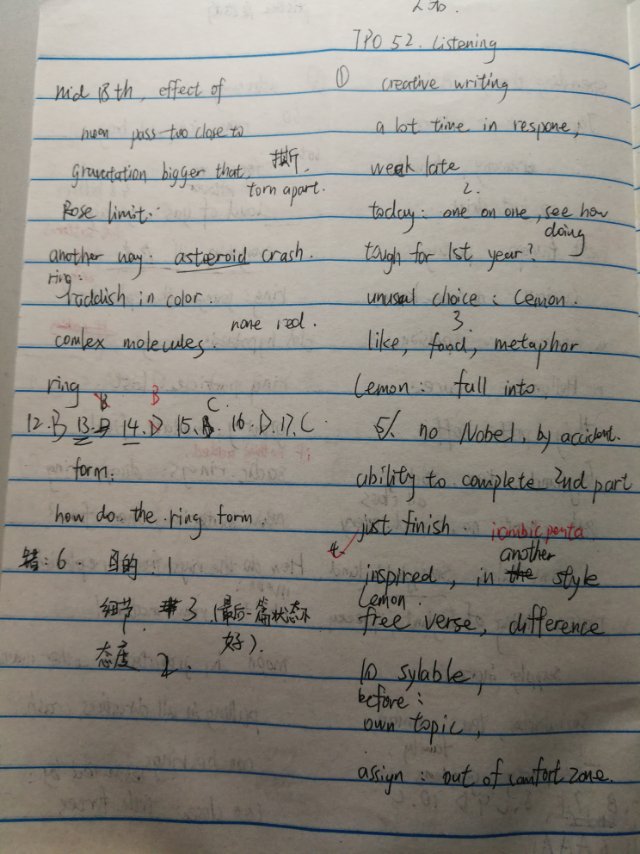 TPO 52. Listening
mid 18th, effect of
moon pass too close to
gravatation bigger that,
torn apart.
Rose limit.
another way: astaeroid crash.
ring:
raddish in color.
none red.
comlex molecules.
ring
B B C
12. B 13. 14. D 15. 16. D 17. C
form.
how do the ring form.
错: 6 目的: 1
细节 3 (最后一篇状态不
好).
态度 2.
① creative writing
a lot time in respone,
weak late
2.
today: one on one, see how
doing
tough for 1st year?
unusal choice: Lemon.
3.
like, food, metaphor.
Lemon: fall into.
5. no Nobel, by accident.
ability to complete 2nd part
just finish iambic penta
4 another
inspired, in the style
Lemon
free verse, difference
10 sylable,
before:
own topic,
assign: out of comfort zone.